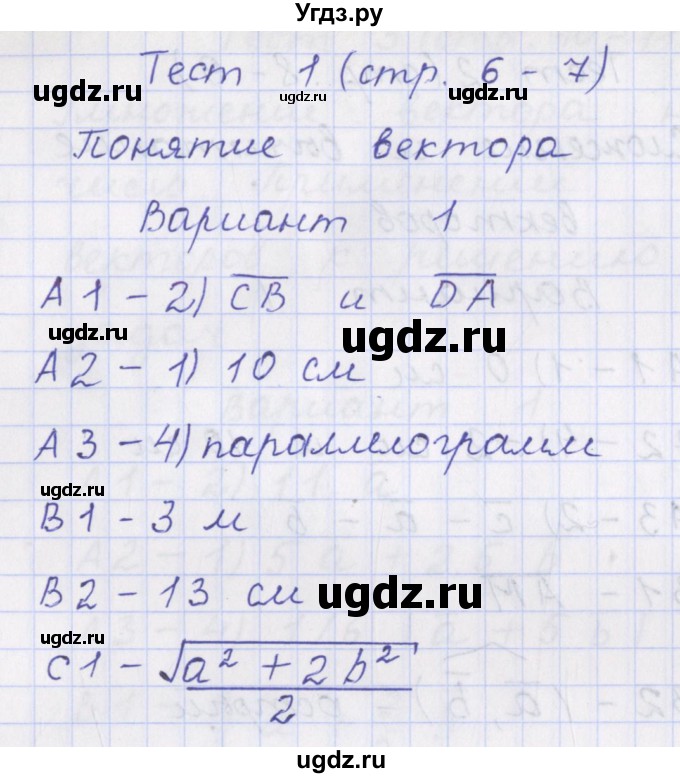 Угдз.ру
Тест 1 (стр. 6 - 7)
ugdz.ru ugdz.ru ugdz.ru
Понятие вектора
Вариант 1
А1 - 2) CB и DA
ugdz.ru ugdz.ru
А2 - 1) 10 см
А3 - 4) параллелограмм
ugdz.ru ugdz.ru
В1 - 3 м
В2 - 13 см
ugdz.ru ugdz.ru
С1 - √a² + 2b² / 2
ugdz.ru ugdz.ru
ugdz.ru